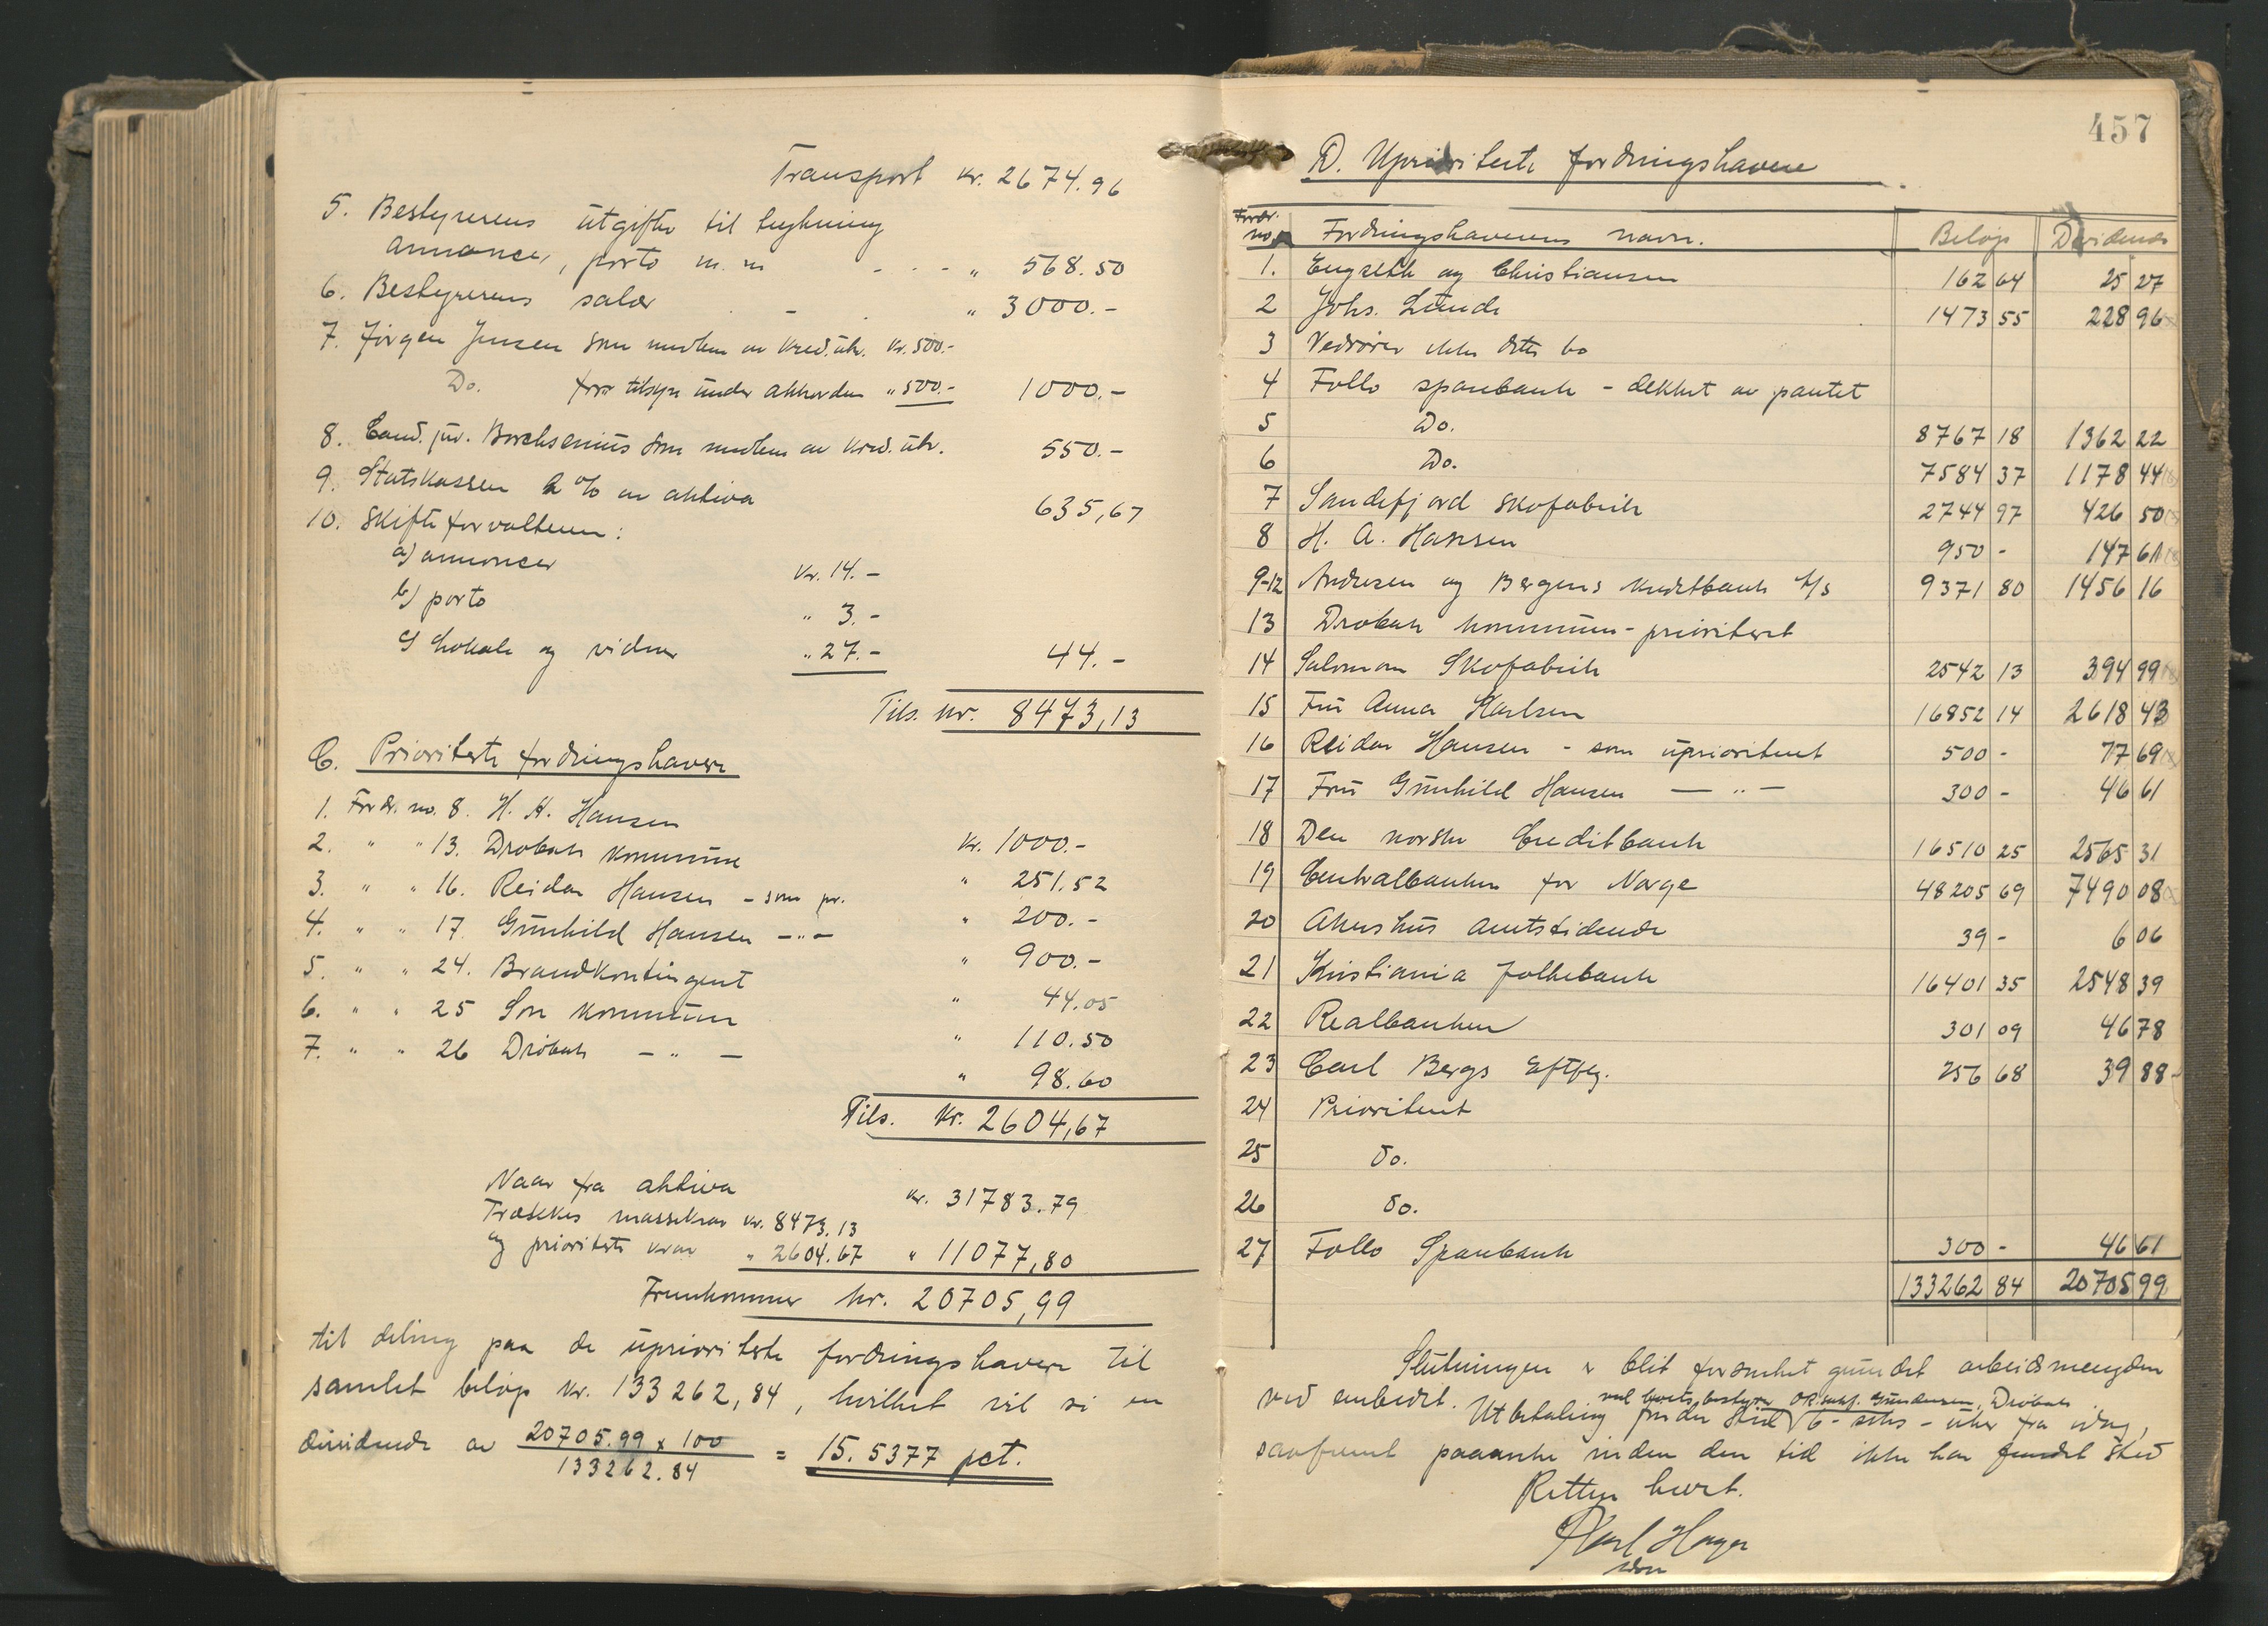 Transport kr. 2674.96
5. Bestyrerens utgifter til
annoncer, porto m. m - - - " 568.50
6. Bestyrerens salær - " 3000.-
7. Jörgen Jensen som medlem av kred.utv. kr. 500.-
Do. for tilsyn under akkorden " 500.- 1000.-
8. Cand. jur. Borchsenius som medlem av kred. utv. 550.-
9. Statskassen 2 % av aktiva 635,67
10. Skifteforvalteren:
a) annoncer kr. 14.-
b) porto " 3.-
c) Lokale og vidner " 27.- 44.-
Tils. kr. 8473,13
C. Prioriterte fordringshavere
1. Fordr. no. 8. H. A. Hansen kr. 1000.-
2. " " 13. Drøbak kommune " 251.52
3. " " 16. Reidar Hansen - som pr. " 200.-
4. " " 17. Gunhild Hansen - " - " 900.-
5. " " 24. Brandkontingent " 44.05
6. " " 25 Son kommune " 110.50
7. " " 26 Drøbak - " - " 98.60
Tils. kr. 2604,67
Naar fra aktiva kr. 31783.79
Trækkes massekrav kr. 8473.13
og prioriterte krav " 2604.67 " 11077,80
Fremkommer kr. 20705,99
til deling paa de uprioriterte fordringshavere til
samlet beløp kr. 133262,84, hvilket vil si en
dividende av 20705.99 x 100 / 133262.84 = 15.5377 pct.
457
D. Uprioriterte fordringshavere
Fordr. no. Fordringshaverens navn. Beløp Dividende
1. Engzelh og Christiansen 162 64 25 27
2 Johs. Lunde 1473 55 228 96
3 Vedrører ikke dette bo
4 Follo sparebank - dekket av pantet
5 Do. 8767 18 1362 22
6 Do. 7584 37 1178 44
7 Sandefjord skofabrik 2744 97 426 50
8 H. A. Hansen 950 - 147 61
9-12 Andresen og Bergens kreditbank A/s 9371 80 1456 16
13 Drøbak kommune - prioritert
14 Salomon Skofabrik 2542 13 394 99
15 Fru Anna Karlsen 16852 14 2618 43
16 Reidar Hansen - som uprioritert 500 - 77 69
17 Fru Gunhild Hansen - " - 300 - 46 61
18 Den norske Creditbank 16510 25 2565 31
19 Centralbanken for Norge 48205 69 7490 08
20 Akershus amtstidende 39 - 6 06
21 Kristiania folkebank 16401 35 2548 39
22 Realbanken 301 09 46 78
23 Carl Bergs Eftflg. 256 68 39 88
24 Prioritert
25 do.
26 do.
27 Follo Sparebank 300 - 46 61
133262 84 20705 99
Slutningen er blit forsinket grundet arbeidsmengden
ved embedet. Utbetaling finder sted 6 - seks - uker fra idag,
ved boets bestyrer O.R.sakf. Gundersen, Drøbak
savfremt paaanke inden den tid ikke har fundet sted
Retten hævet.
Karl Hager